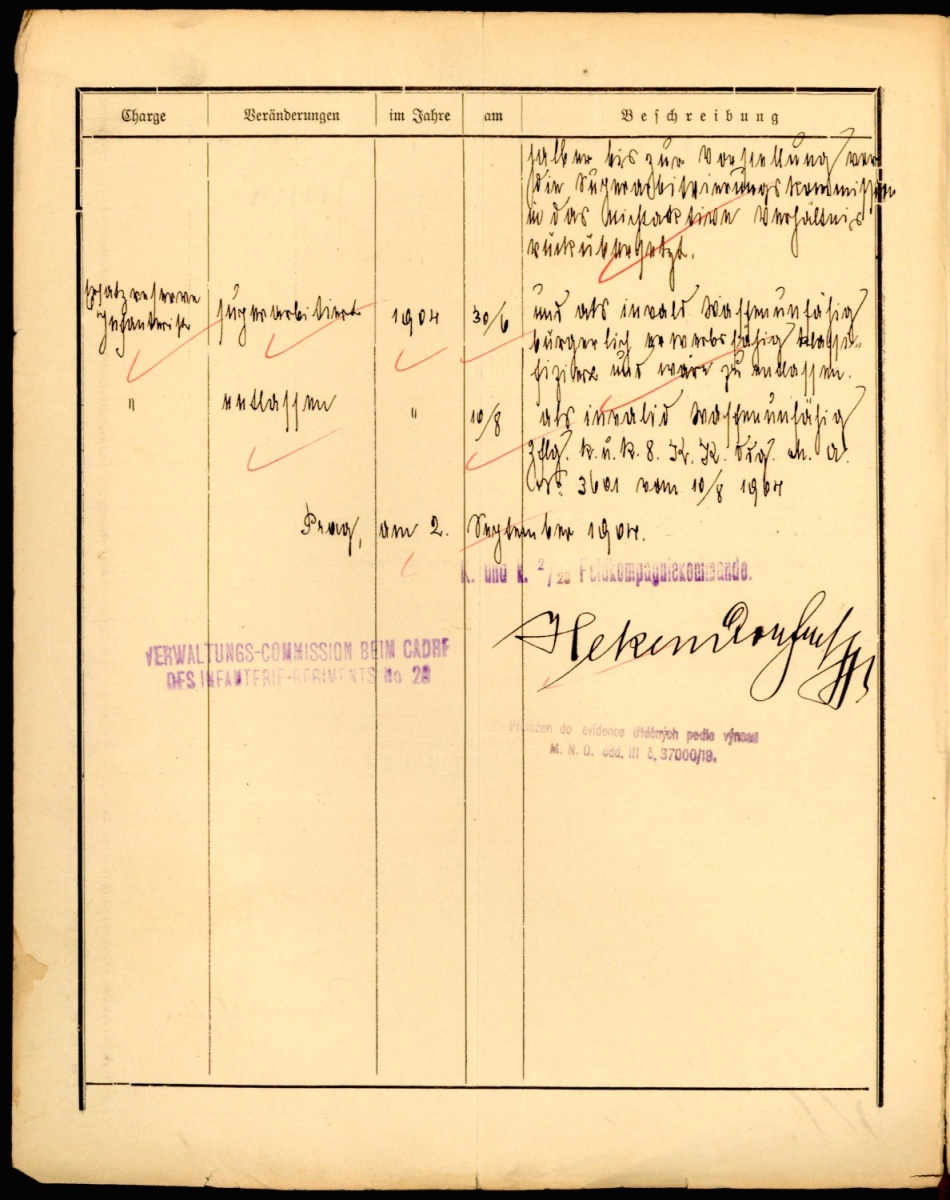 Charge Veränderungen im Jahre am Beschreibung
halber bis zur Vorstellung vor
die Superarbitrierungskommission
in das nichtaktive Verhältnis
rückübersetzt.
Ersatzreserve superarbitriert 1904 30/6 und als invalid Waffenunfähig
Infanterist bürgerlich erwerbsfähig klassi-
fiziert und wäre zu entlassen.
" entlassen " 10/8 als invalid Waffenunfähig
Zflg. k. u. k. 8. K. K. M. A.
No. 3601 vom 10/8 1904
Prag, am 2. September 1904.
K. und K. 2/28 Feldkompagniekommando.
VERWALTUNGS-COMMISSION BEIM CADRE
DES INFANTERIE-REGIMENTS No 28
do evidence podle výnosu
M. N. O. odd. III č. 37000/19.